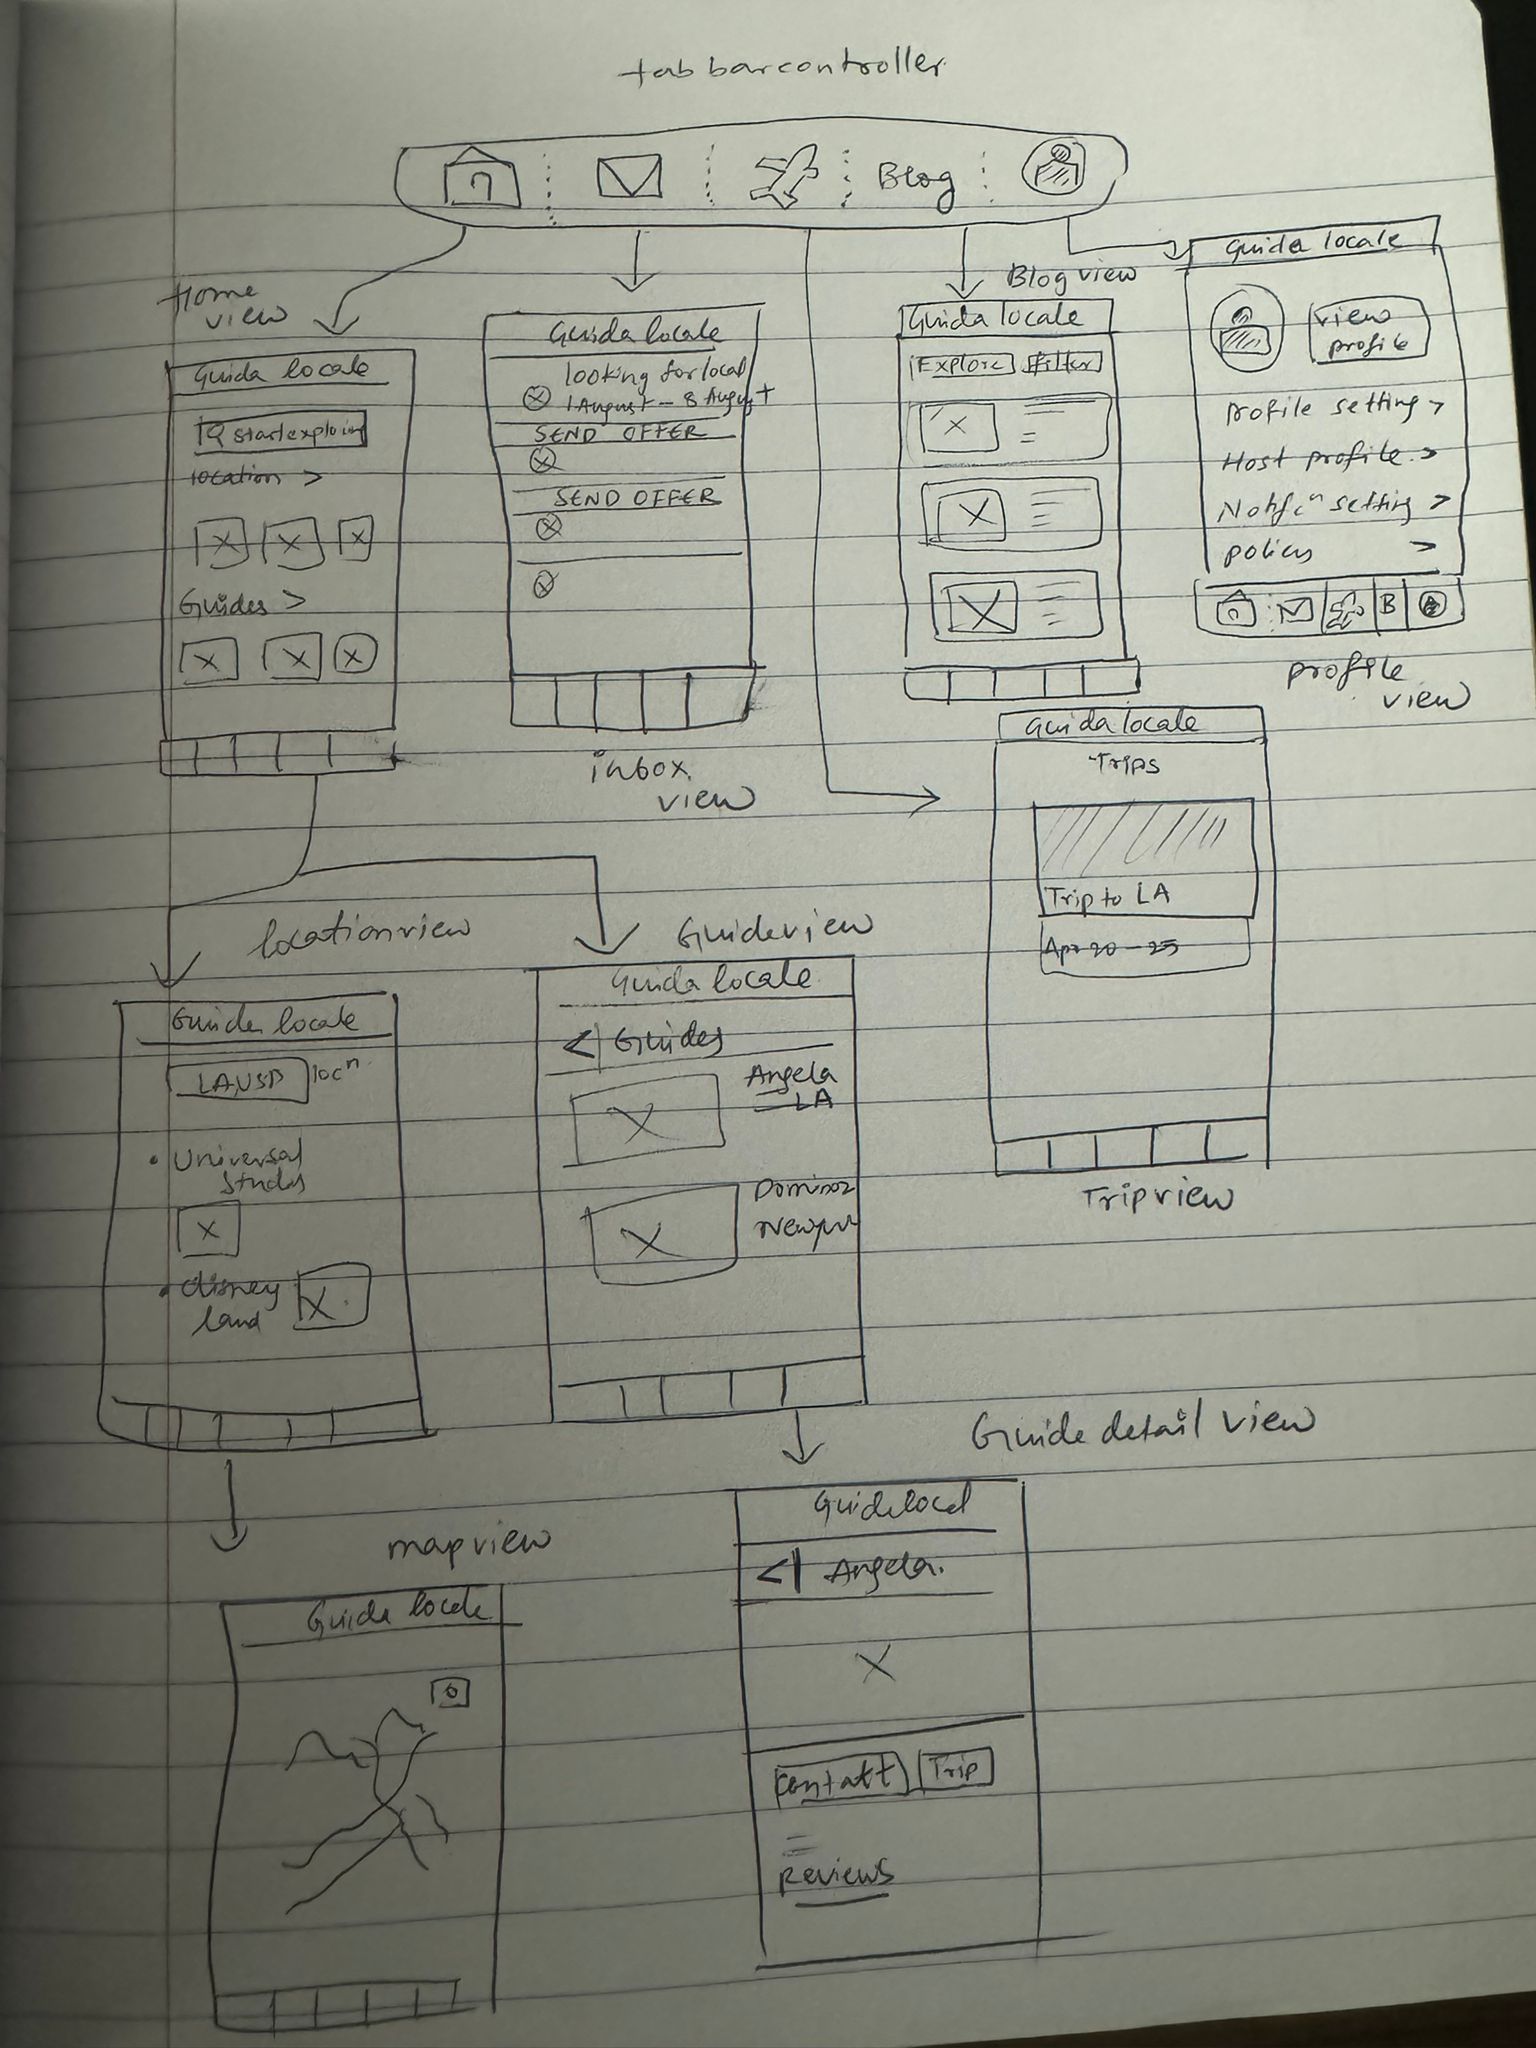 tab bar controller
Blog
Home
view
Guida locale
start exploring
location >
Guides >
Guida locale
looking for local
1 August - 8 August
SEND OFFER
SEND OFFER
inbox
view
Blog view
Guida locale
Explore Filter
Guida locale
view
profile
profile setting >
Host profile >
Notifcn setting >
>
B
profile
view
Guida locale
Trips
Trip to LA
Apr 20 - 25
Trip view
location view
Guida locale
locn
• Universal
• disney
land
Guide view
Guida locale
< Guides
Angela
LA
map view
Guida locale
Guide detail view
< Angela.
Contatt Trip
Reviews